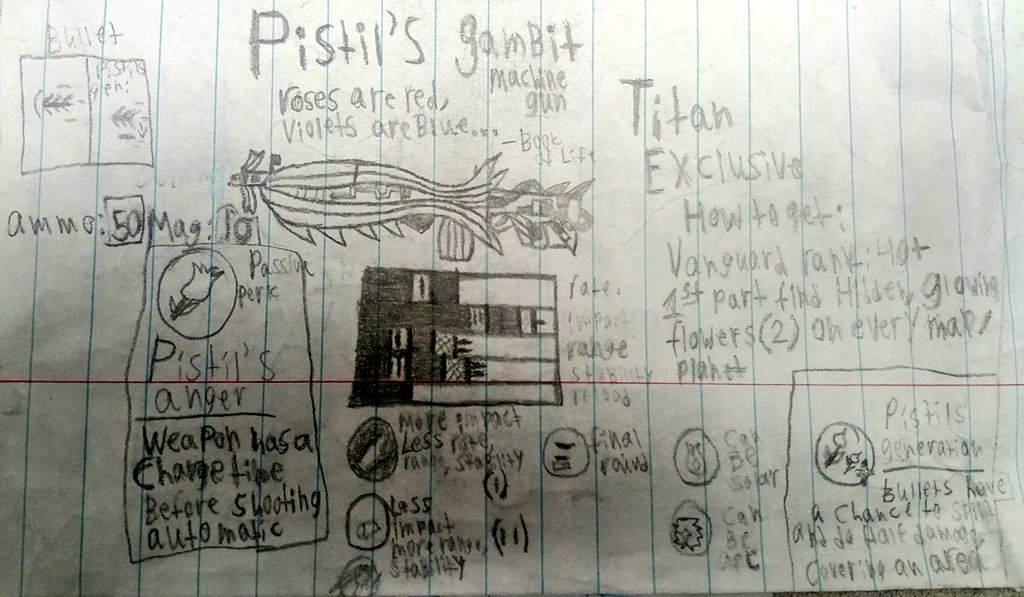 Pistil's gamBit
machine
gun
roses are red,
violets are Blue...
- Book
of Life
Bullet
ammo: 50 Mag: 10
Passive
perk
Pistil's
anger
Weapon has a
Charge time
Before shooting
automatic
rate.
impact
range
stability
reload
more impact
Less rate,
range, stability
(I)
Less
impact
more range,
stability
(II)
final
round
Can
Be
Solar
Can
Be
Arc
Titan
Exclusive
How to get:
Vanguard rank:
1st part find Hidden, glowing
flowers (2) on every map/
planet
Pistils
generation
bullets have
a chance to split
and do half damage
covering an area